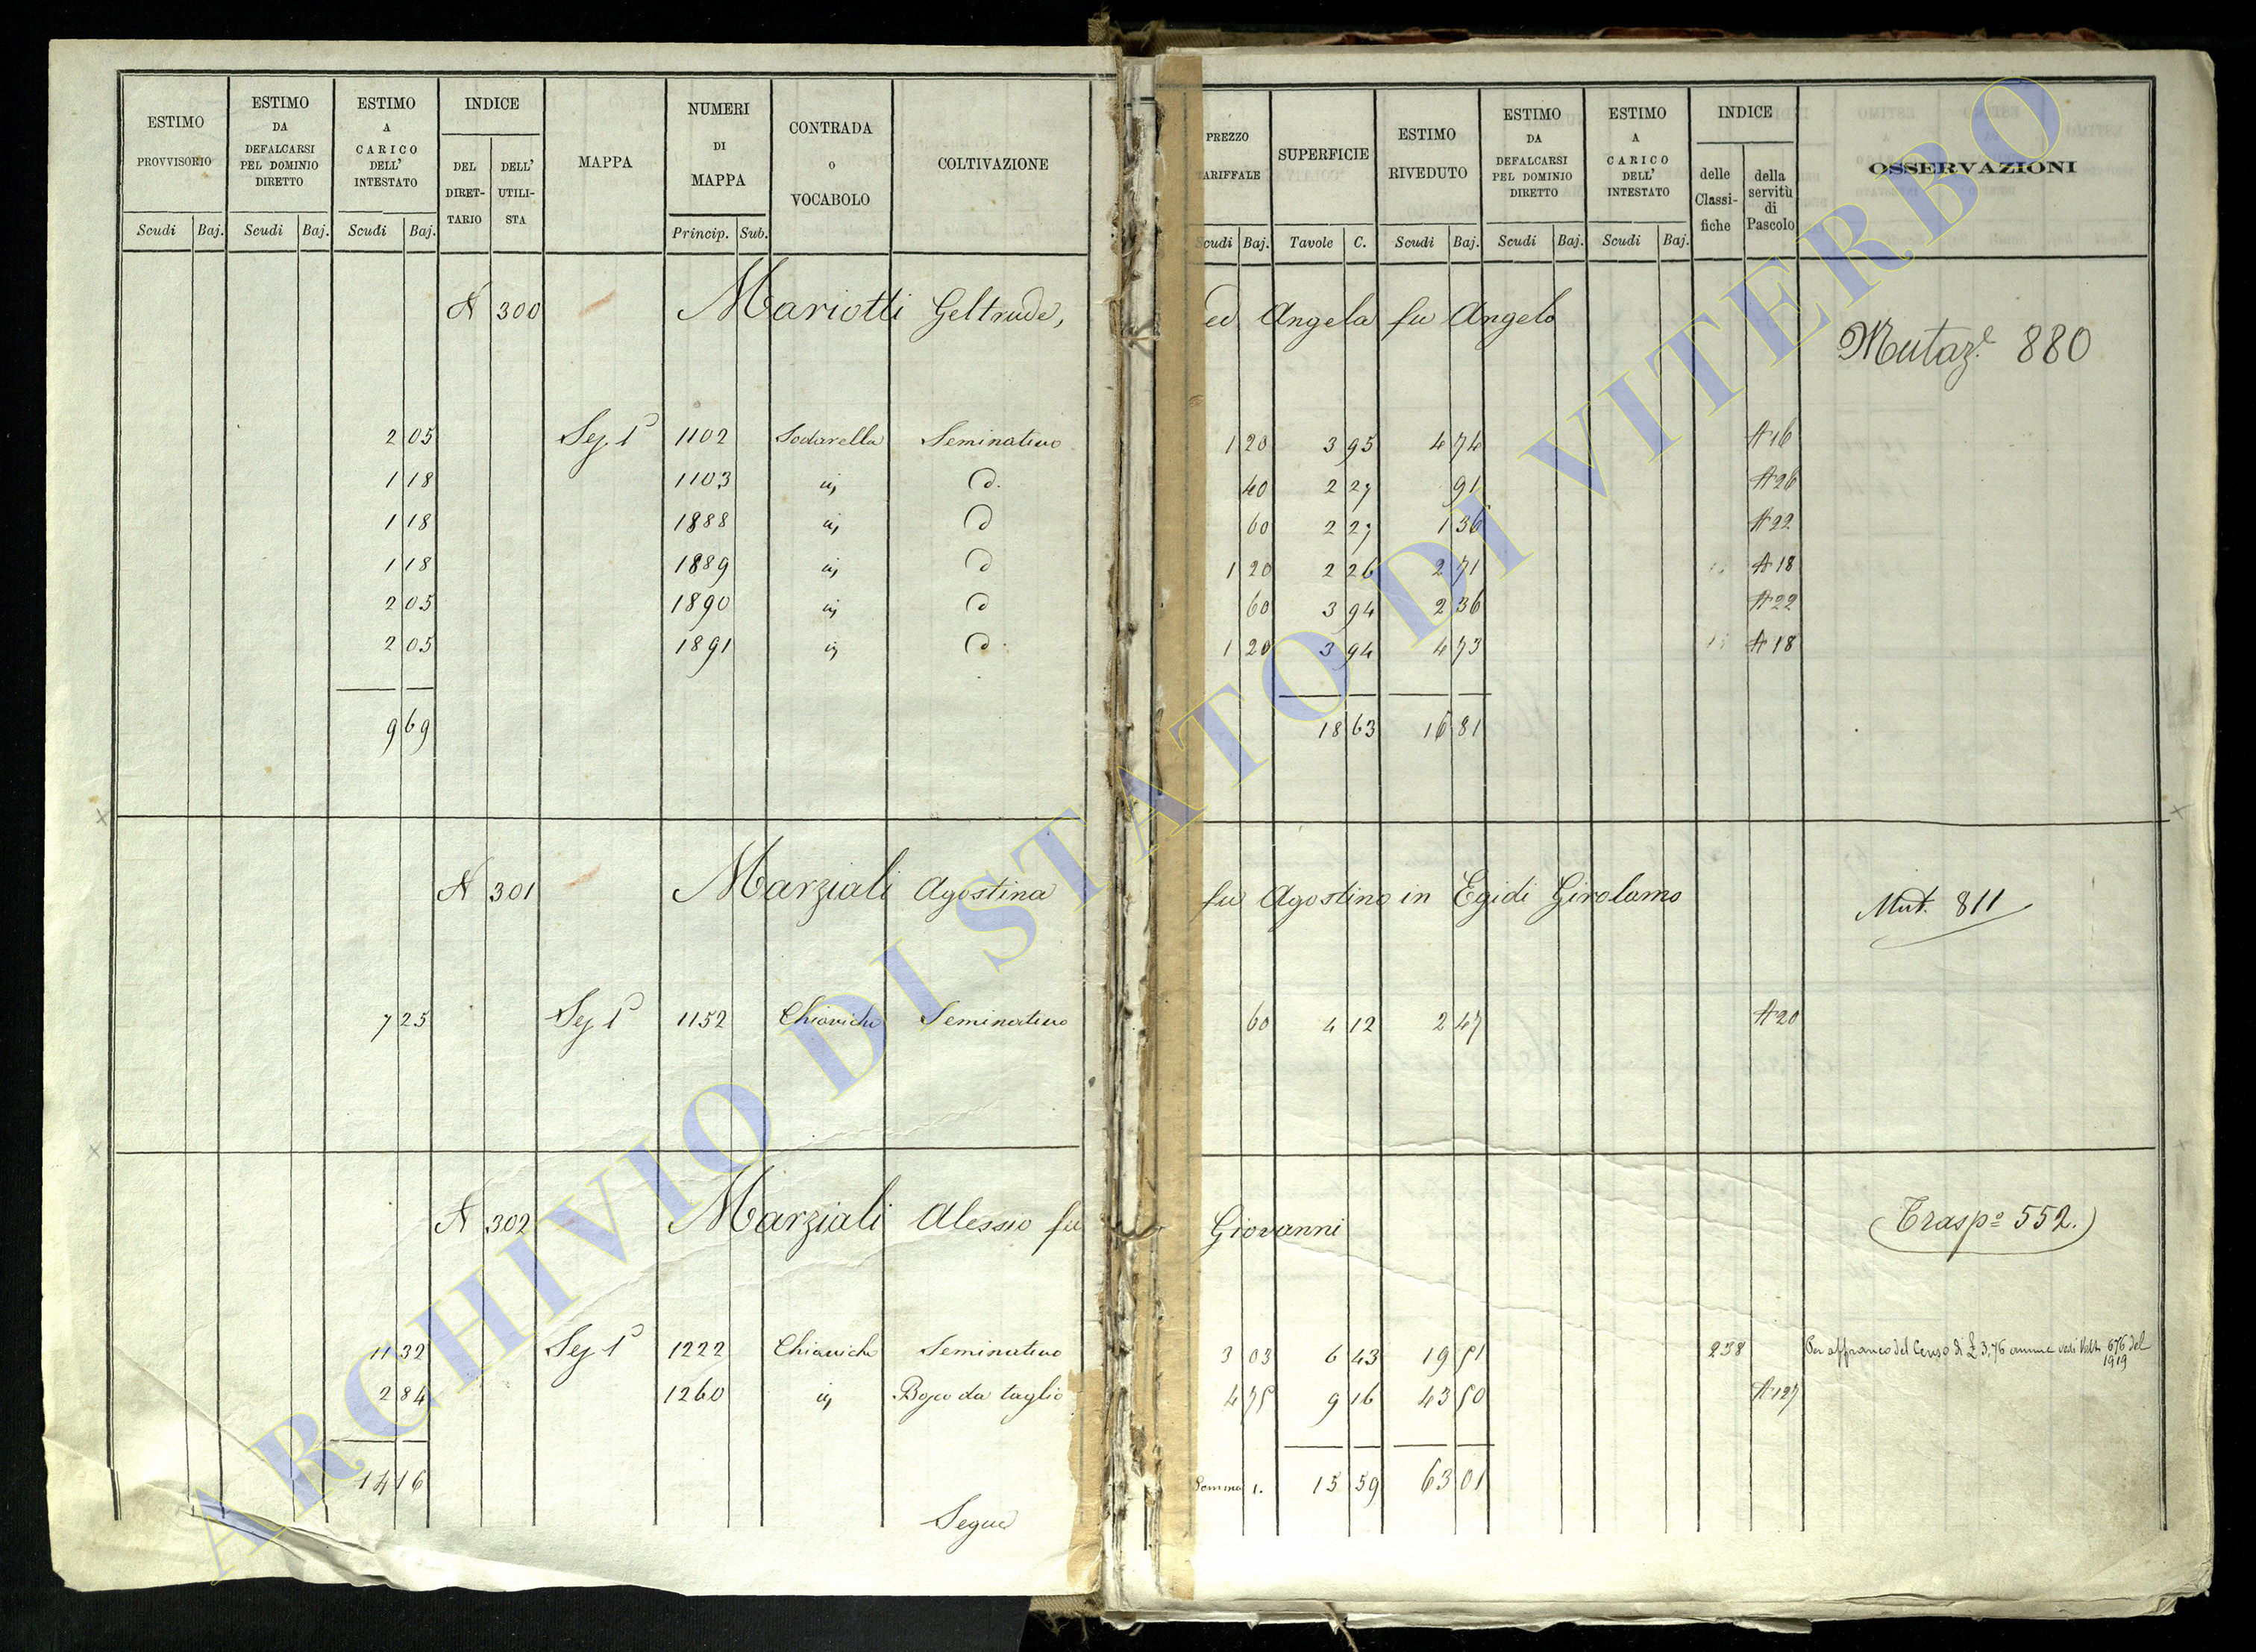 ESTIMO PROVVISORIO Scudi Baj.
ESTIMO DA DEFALCARSI PEL DOMINIO DIRETTO Scudi Baj.
ESTIMO A CARICO DELL' INTESTATO Scudi Baj.
INDICE DEL DIRET- TARIO DELL' UTILI- STA
MAPPA
NUMERI DI MAPPA Princip. Sub.
CONTRADA o VOCABOLO
COLTIVAZIONE
PREZZO TARIFFALE Scudi Baj.
SUPERFICIE Tavole C.
ESTIMO RIVEDUTO Scudi Baj.
ESTIMO DA DEFALCARSI PEL DOMINIO DIRETTO Scudi Baj.
ESTIMO A CARICO DELL' INTESTATO Scudi Baj.
INDICE delle Classi- fiche della servitù di Pascolo
OSSERVAZIONI
N 300 Mariotti Geltrude, ed Angela fu Angelo
Mutaz.e 880
2 05 Sez. 1ª 1102 Sodarella Seminativo 1 20 3 95 4 74 A 16
1 18 1103 id. d. 40 2 27 91 A 26
1 18 1888 id. d 60 2 27 1 36 A 22
1 18 1889 id. d 1 20 2 26 2 71 A 18
2 05 1890 id. d 60 3 94 2 36 A 22
2 05 1891 id. d. 1 20 3 94 4 73 A 18
9 69 18 63 16 81
N 301 Marziali Agostina fu Agostino in Egidi Girolamo
Mut. 811
7 25 Sez 1ª 1152 Chiaviche Seminativo 60 4 12 2 47 A 20
N 302 Marziali Alessio fu Giovanni
(Trasp.o 552.)
11 32 Sez 1ª 1222 Chiaviche Seminativo 3 03 6 43 19 51 238 Per affranco del Censo di £ 3,76 annue vedi Volt. 676 del 1919
2 84 1260 id. Bosco da taglio 4 75 9 16 43 50 A 127
14 16 Somma 1. 15 59 63 01
Segue
ARCHIVIO DI STATO DI VITERBO